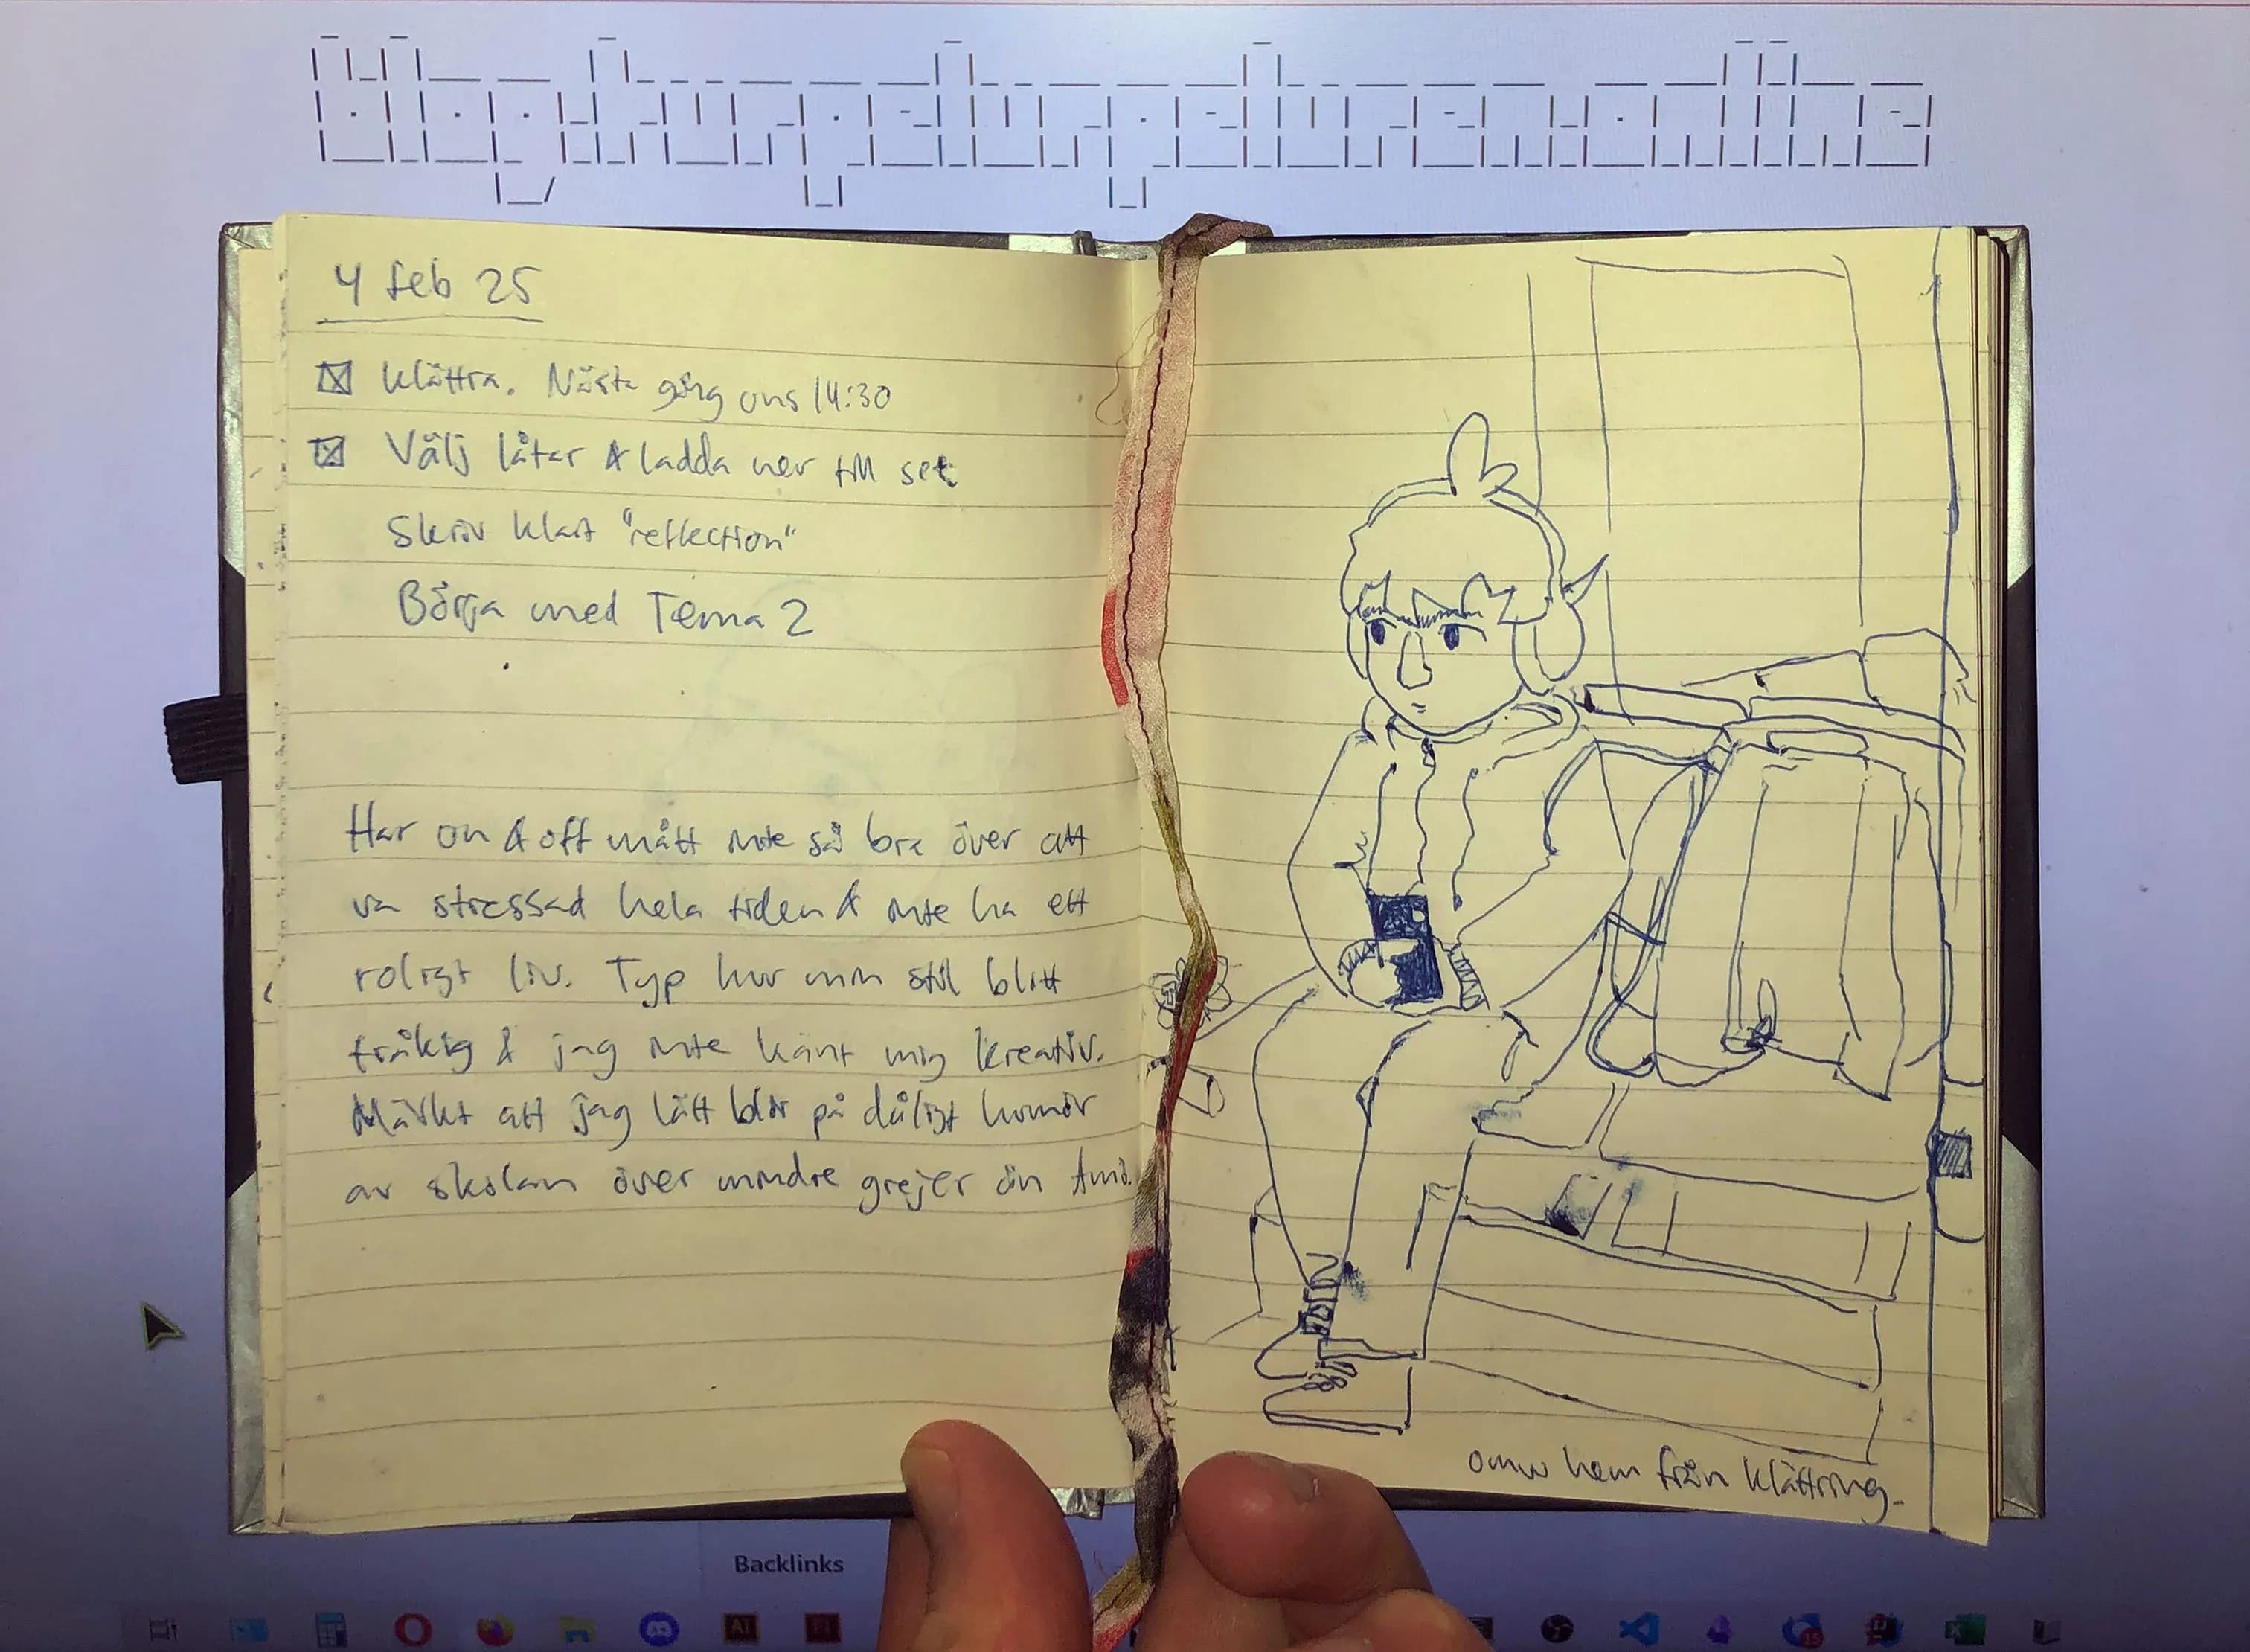 4 feb 25
Klättra. Nästa gång ons 14:30
Välj låtar & ladda ner till set
Skriv klart "reflection"
Börja med Tema 2
Har on & off mått inte så bra över att
va stressad hela tiden & inte ha ett
roligt liv. Typ hur min stil blitt
tråkig & jag inte känt mig kreativ.
Märkt att jag lätt blir på dåligt humör
av skolan över mindre grejer än
omw hem från klättring.
Backlinks